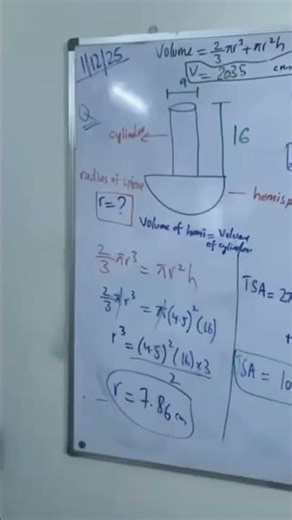 1/12/25
Volume = 2/3 πr³ + πr²h
V = 2035
Q
9
cylinder
16
radius of
r = ?
Volume of hemi = Volume of cylinder
2/3 πr³ = πr²h
2/3 πr³ = π(4.5)²(16)
r³ = (4.5)²(16)×3
2
r = 7.86 cm
TSA = 2π
TSA = 10